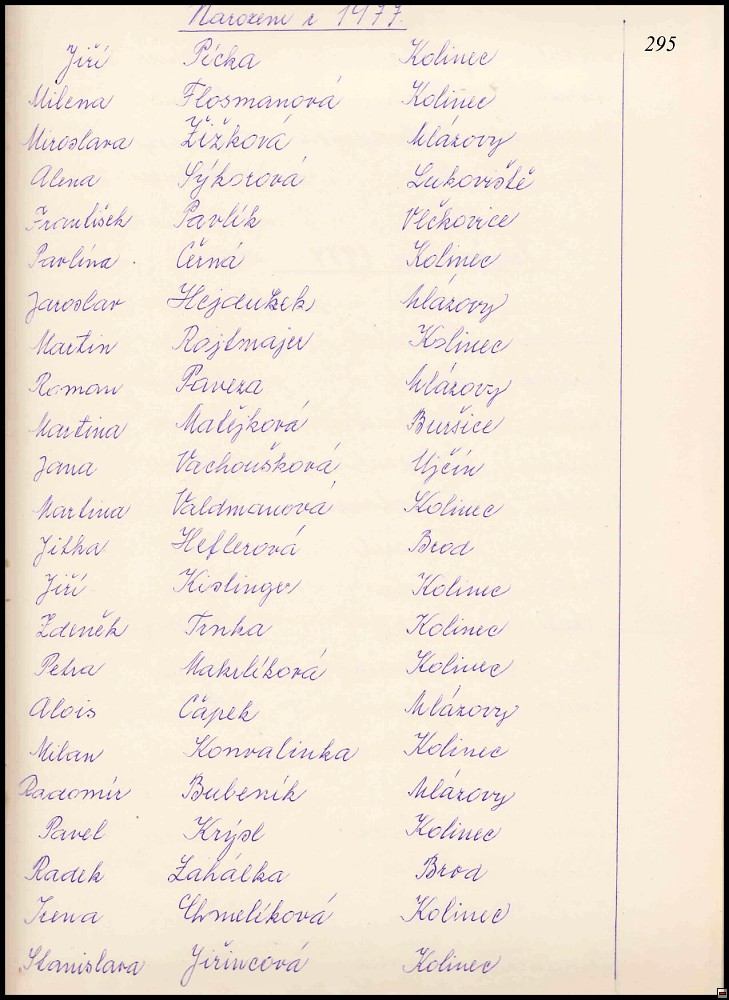 Narození r 1977.
295
Jiří Pícka Kolinec
Milena Flosmanová Kolinec
Miroslava Žižková Mlázovy
Alena Sýkorová Lukoviště
František Pavlík Vlčkovice
Pavlína Černá Kolinec
Jaroslav Hejdušek Mlázovy
Martin Rajtmajer Kolinec
Roman Paveza Mlázovy
Martina Matějková Buršice
Jana Vachoušková Ujčín
Martina Valdmanová Kolinec
Jitka Heflerová Brod
Jiří Kislinger Kolinec
Zdeněk Trnka Kolinec
Petra Makrlíková Kolinec
Alois Čapek Mlázovy
Milan Konvalinka Kolinec
Radomír Bubeník Mlázovy
Pavel Krýsl Kolinec
Radek Zahálka Brod
Irena Chmelíková Kolinec
Stanislava Jiřincová Kolinec